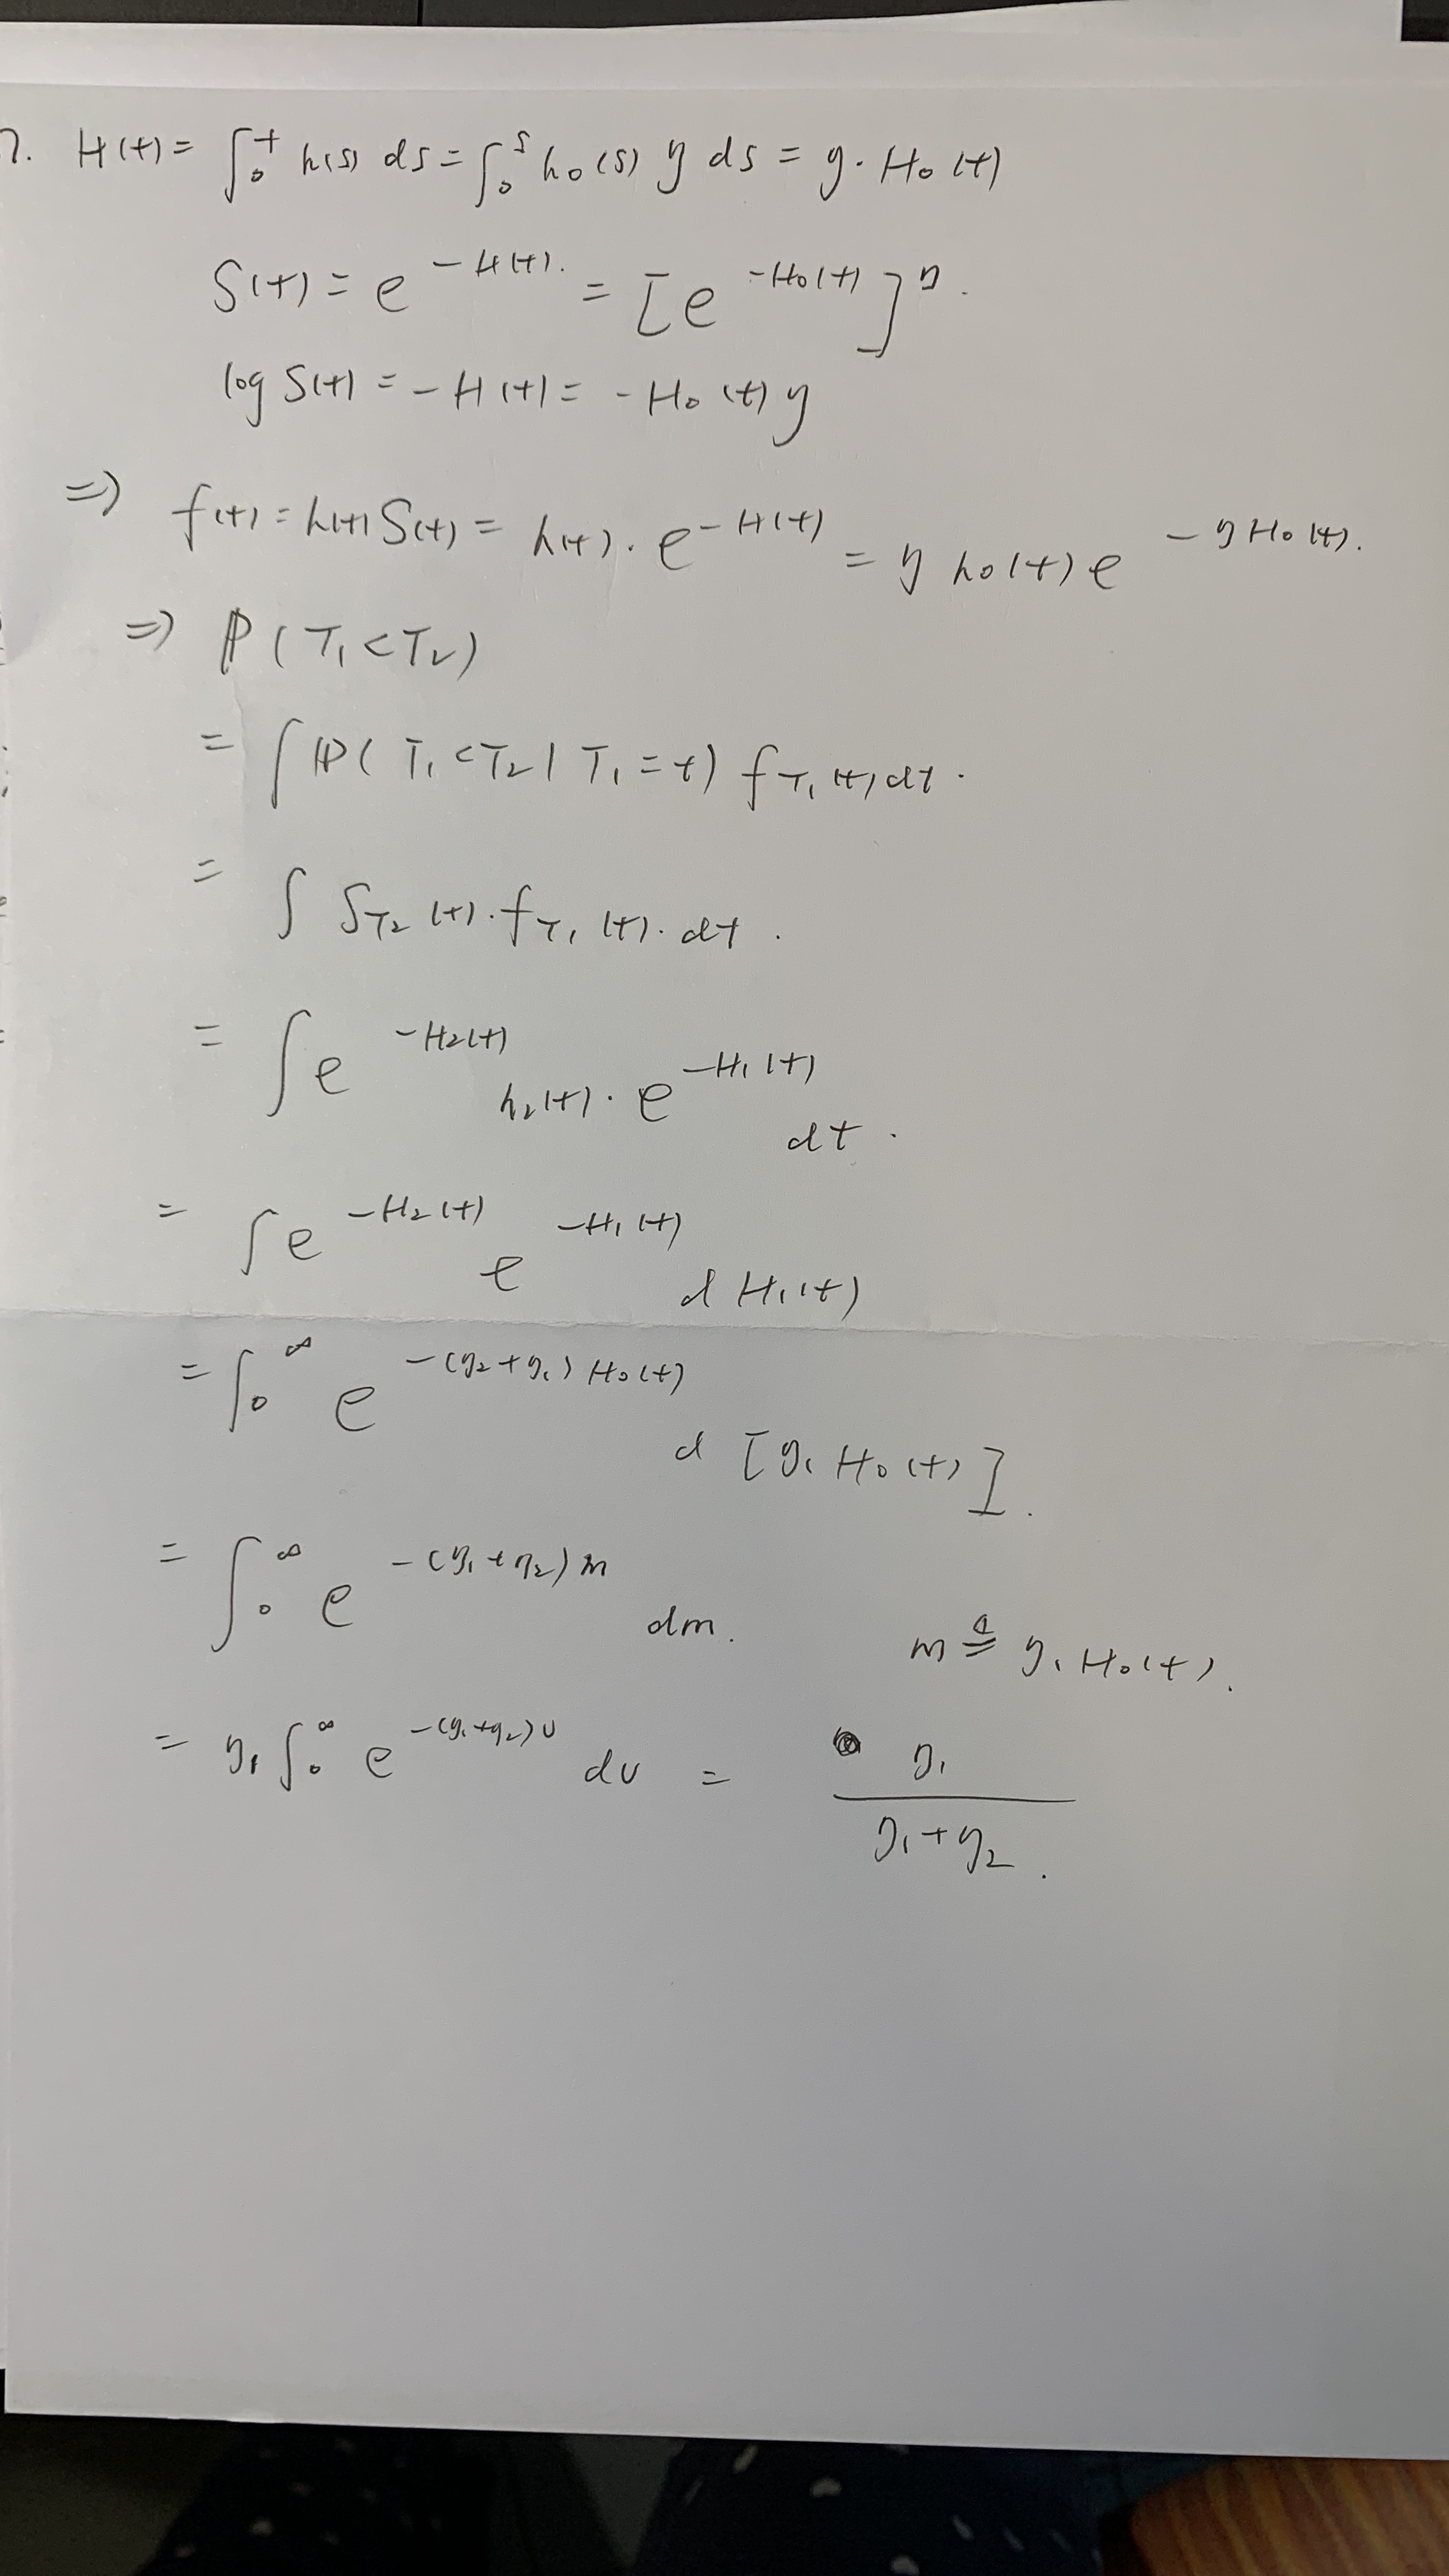 7. H(t) = ∫₀ᵗ h(s) ds = ∫₀ˢ h₀(s) η ds = η · H₀(t)
S(t) = e^{-H(t)}. = [e^{-H₀(t)}]^η.
log S(t) = -H(t) = -H₀(t) η
⇒ f(t) = h(t) S(t) = h(t) · e^{-H(t)} = η h₀(t) e^{-η H₀(t)}.
⇒ ℙ(T₁ < T₂)
= ∫ ℙ(T₁ < T₂ | T₁ = t) f_{T₁}(t) dt.
= ∫ S_{T₂}(t) · f_{T₁}(t) · dt.
= ∫ e^{-H₂(t)} h₂(t) · e^{-H₁(t)} dt.
= ∫ e^{-H₂(t)} e^{-H₁(t)} d H₁(t)
= ∫₀^∞ e^{-(η₂+η₁) H₀(t)} d [η₁ H₀(t)].
= ∫₀^∞ e^{-(η₁+η₂) m} dm. m ≜ η₁ H₀(t).
= η₁ ∫₀^∞ e^{-(η₁+η₂) u} du = η₁ / (η₁+η₂).